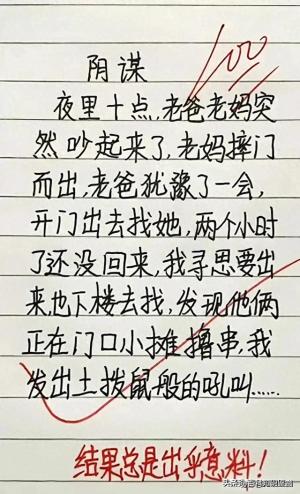 100
阴谋
夜里十点,老爸老妈突
然吵起来了,老妈摔门
而出,老爸犹豫了一会,
开门出去找她,两个小时
了还没回来,我寻思要出
来,也下楼去找,发现他俩
正在门口小摊撸串,我
发出土拨鼠般的吼叫……
结果总是出乎意料!